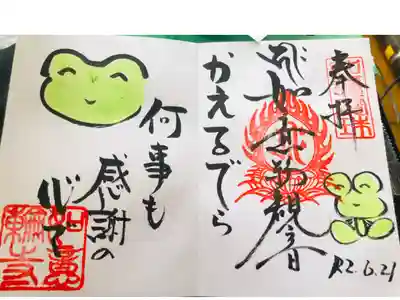 奉拝
R2.6.21
如意輪観音
かえるでら
何事も
感謝の
心で
如意
輪寺